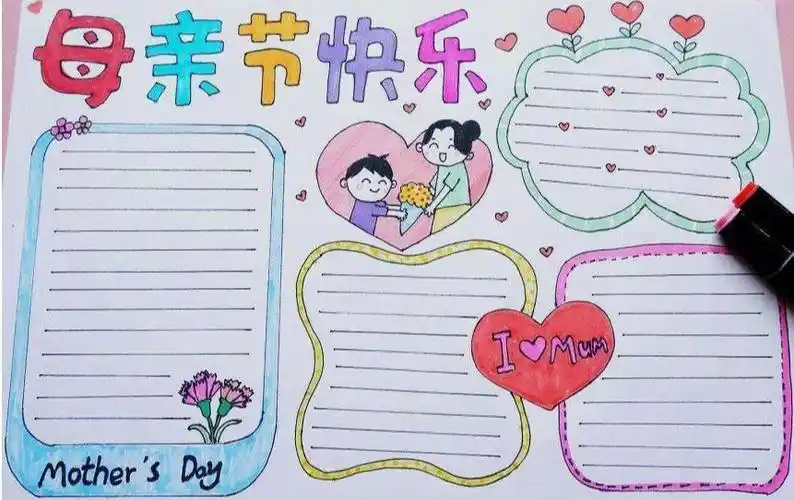 母亲节快乐
I ♥ Mum
Mother's Day